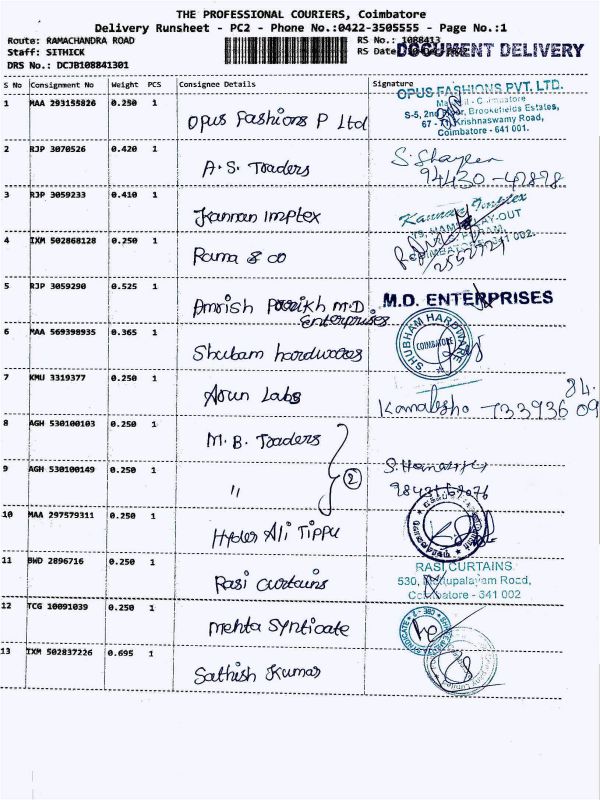 THE PROFESSIONAL COURIERS, Coimbatore
Delivery Runsheet - PC2 - Phone No.:0422-3505555 - Page No.:1
Route: RAMACHANDRA ROAD
RS No.: 1088413
Staff: SITHICK
RS Date
DOCUMENT DELIVERY
DRS No.: DCJB108841301
S No Consignment No Weight PCS Consignee Details Signature
1 MAA 293155826 0.250 1 Opus Fashions P Ltd
OPUS FASHIONS PVT. LTD.
S-5, 2nd Floor, Brookefields Estates,
67 - Krishnaswamy Road,
Coimbatore - 641 001.
2 RJP 3070526 0.420 1 A.S. Traders
94430-47878
3 RJP 3059233 0.410 1 Kannan Implex
Kannan Implex
4 IXM 502868128 0.250 1 Rama & co
2552727
5 RJP 3059290 0.525 1 Amrish Parikh M.D
Enterprises
M.D. ENTERPRISES
6 MAA 569398935 0.365 1 Shubam hardwares
SHUBHAM HARDWARE
COIMBATORE
7 KMU 3319377 0.250 1 Arun Labs
84.
733936 09
8 AGH 530100103 0.250 1 M.B. Traders
9 AGH 530100149 0.250 1 "
2
10 MAA 297579311 0.250 1 Hyder Ali Tippu
11 BWD 2896716 0.250 1 Rasi curtains
RASI CURTAINS
530, Mettupalayam Road,
Coimbatore - 641 002
12 TCG 10091039 0.250 1 Mehta Synticate
13 IXM 502837226 0.695 1 Sathish Kumar